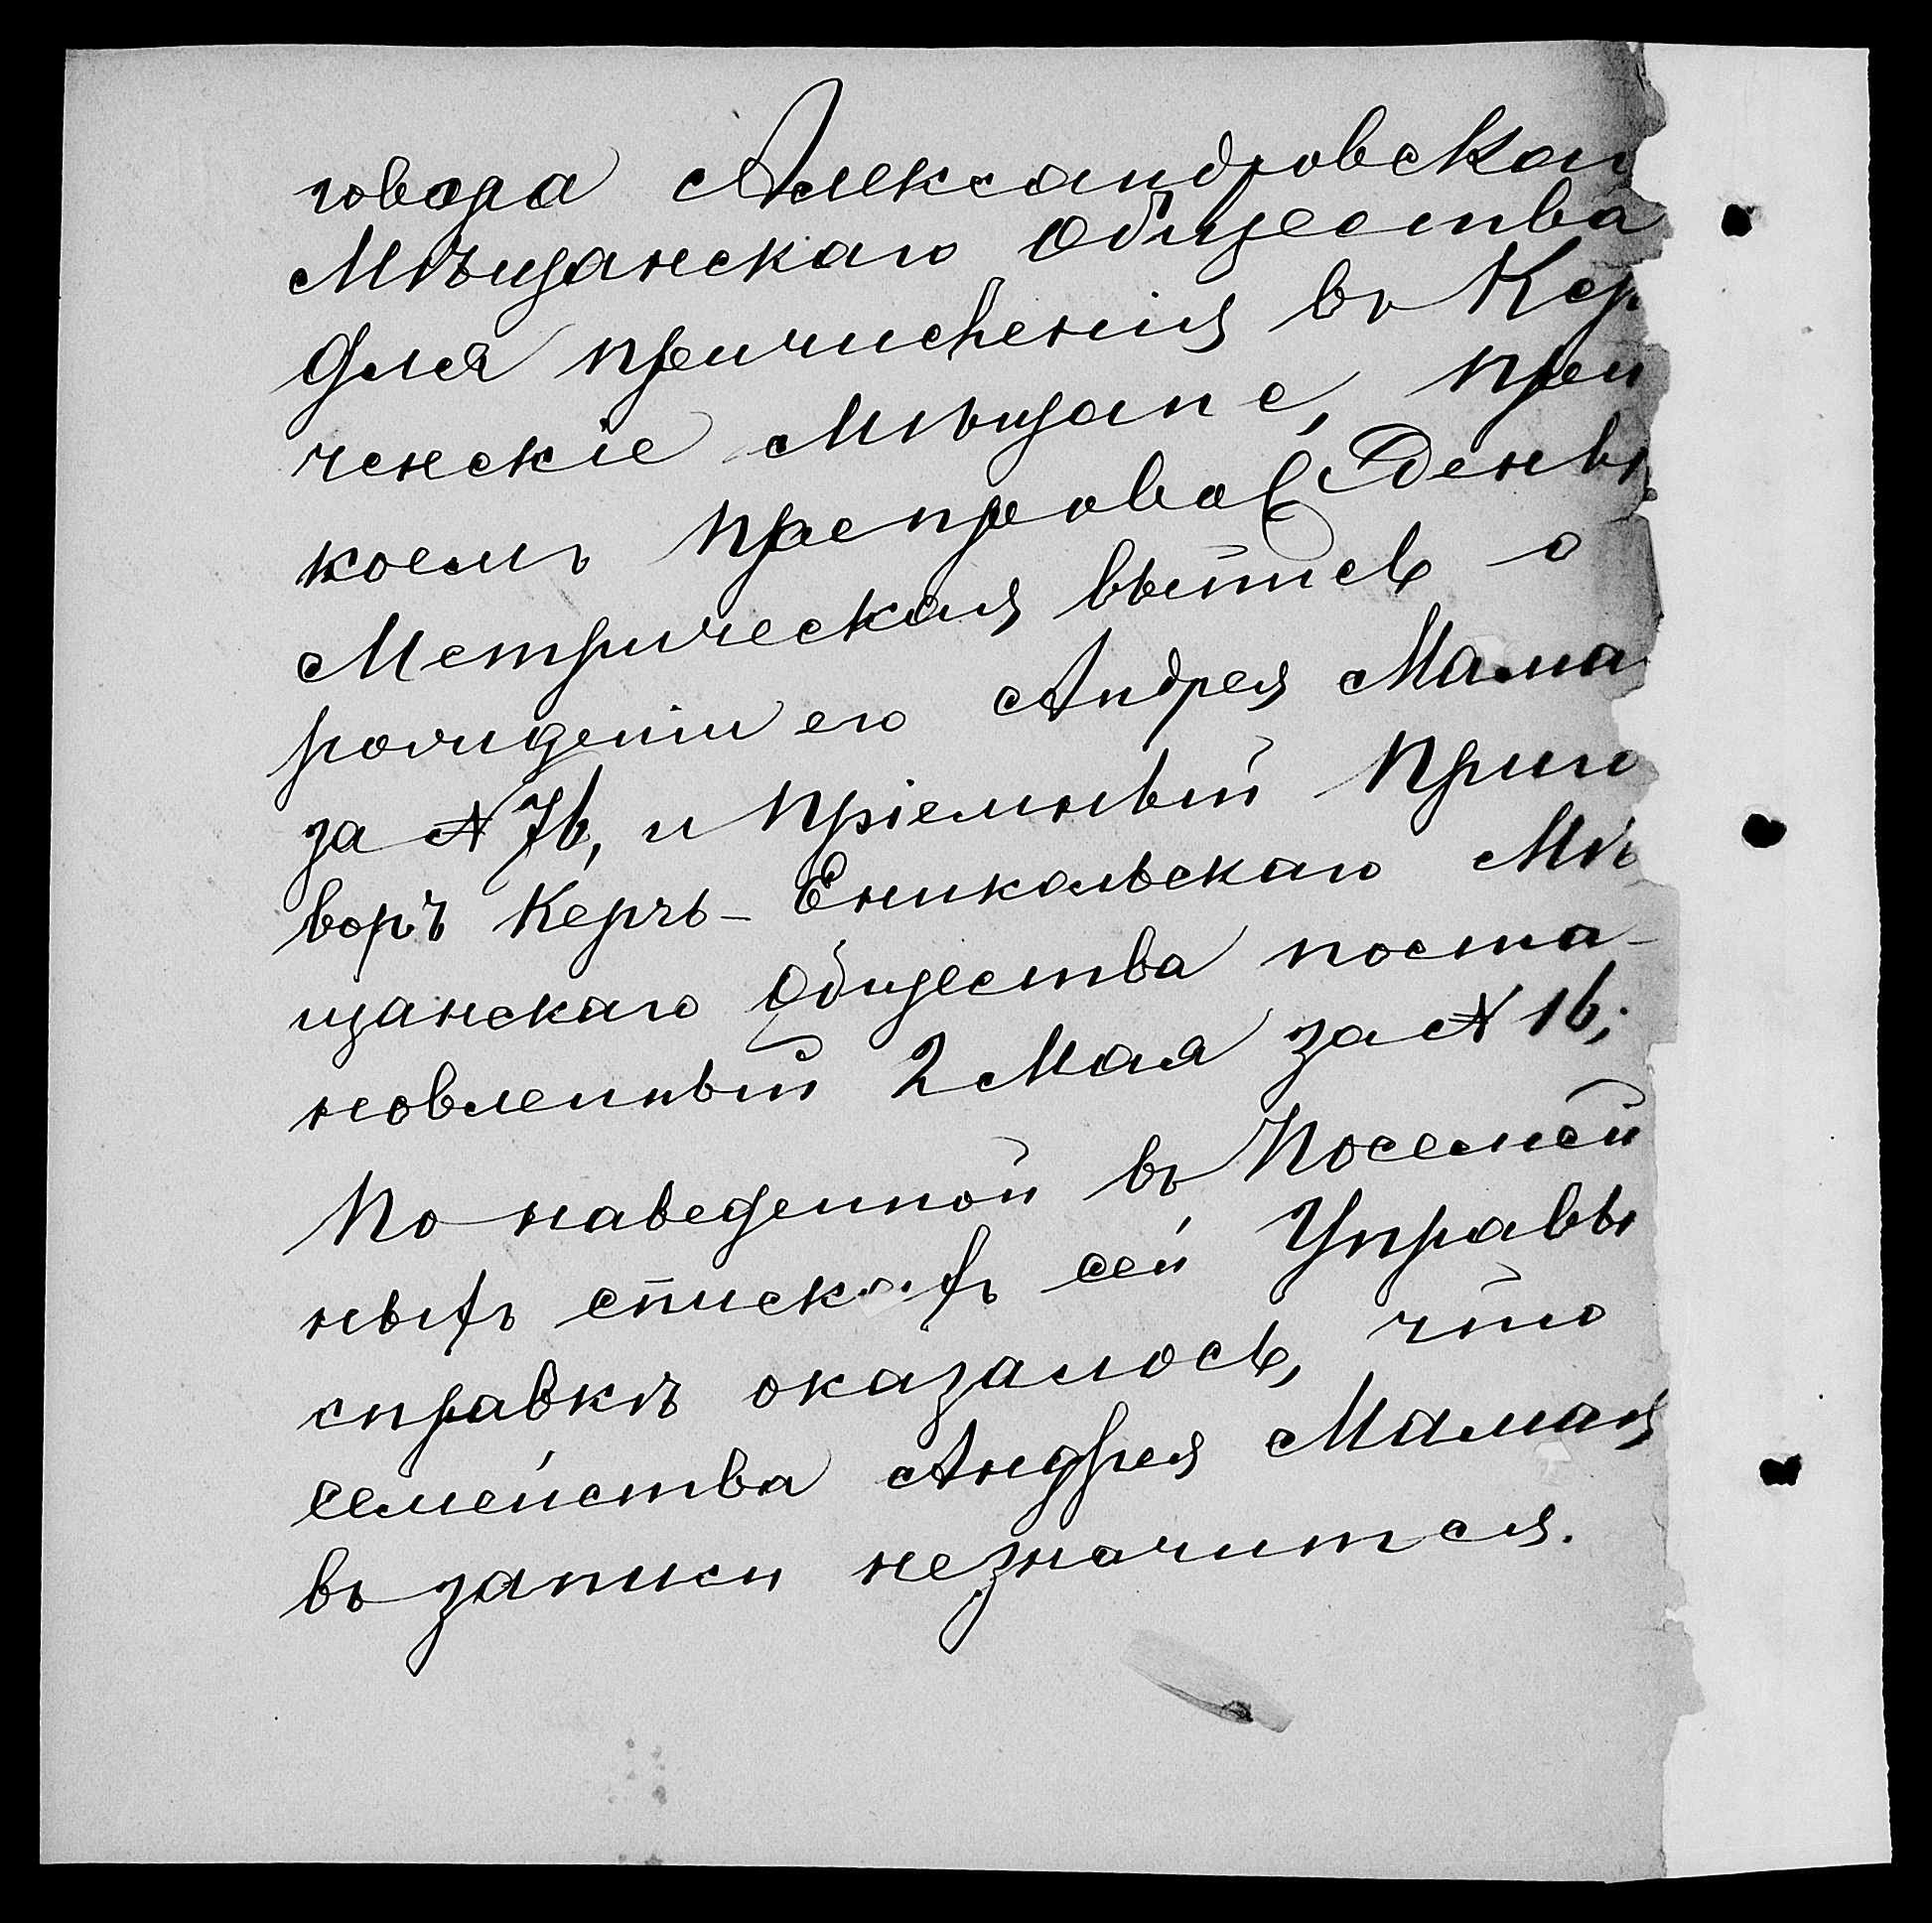 говора Александровскаго
Мѣщанскаго Общества
для причисленія въ Кер
ченскіе Мѣщане, при
коемъ препровождены
Метрическая выпись о
рожденіи его Андрея Мама
за № 76, и пріемный приго
воръ Керчь-Еникольскаго Мѣ
щанскаго Общества поста-
новленный 2 Мая за № 16;
По наведенной въ Посемей
ныхъ спискахъ сей Управы
справкѣ оказалось, что
семейства Андрея Мамая
въ записи незначится.